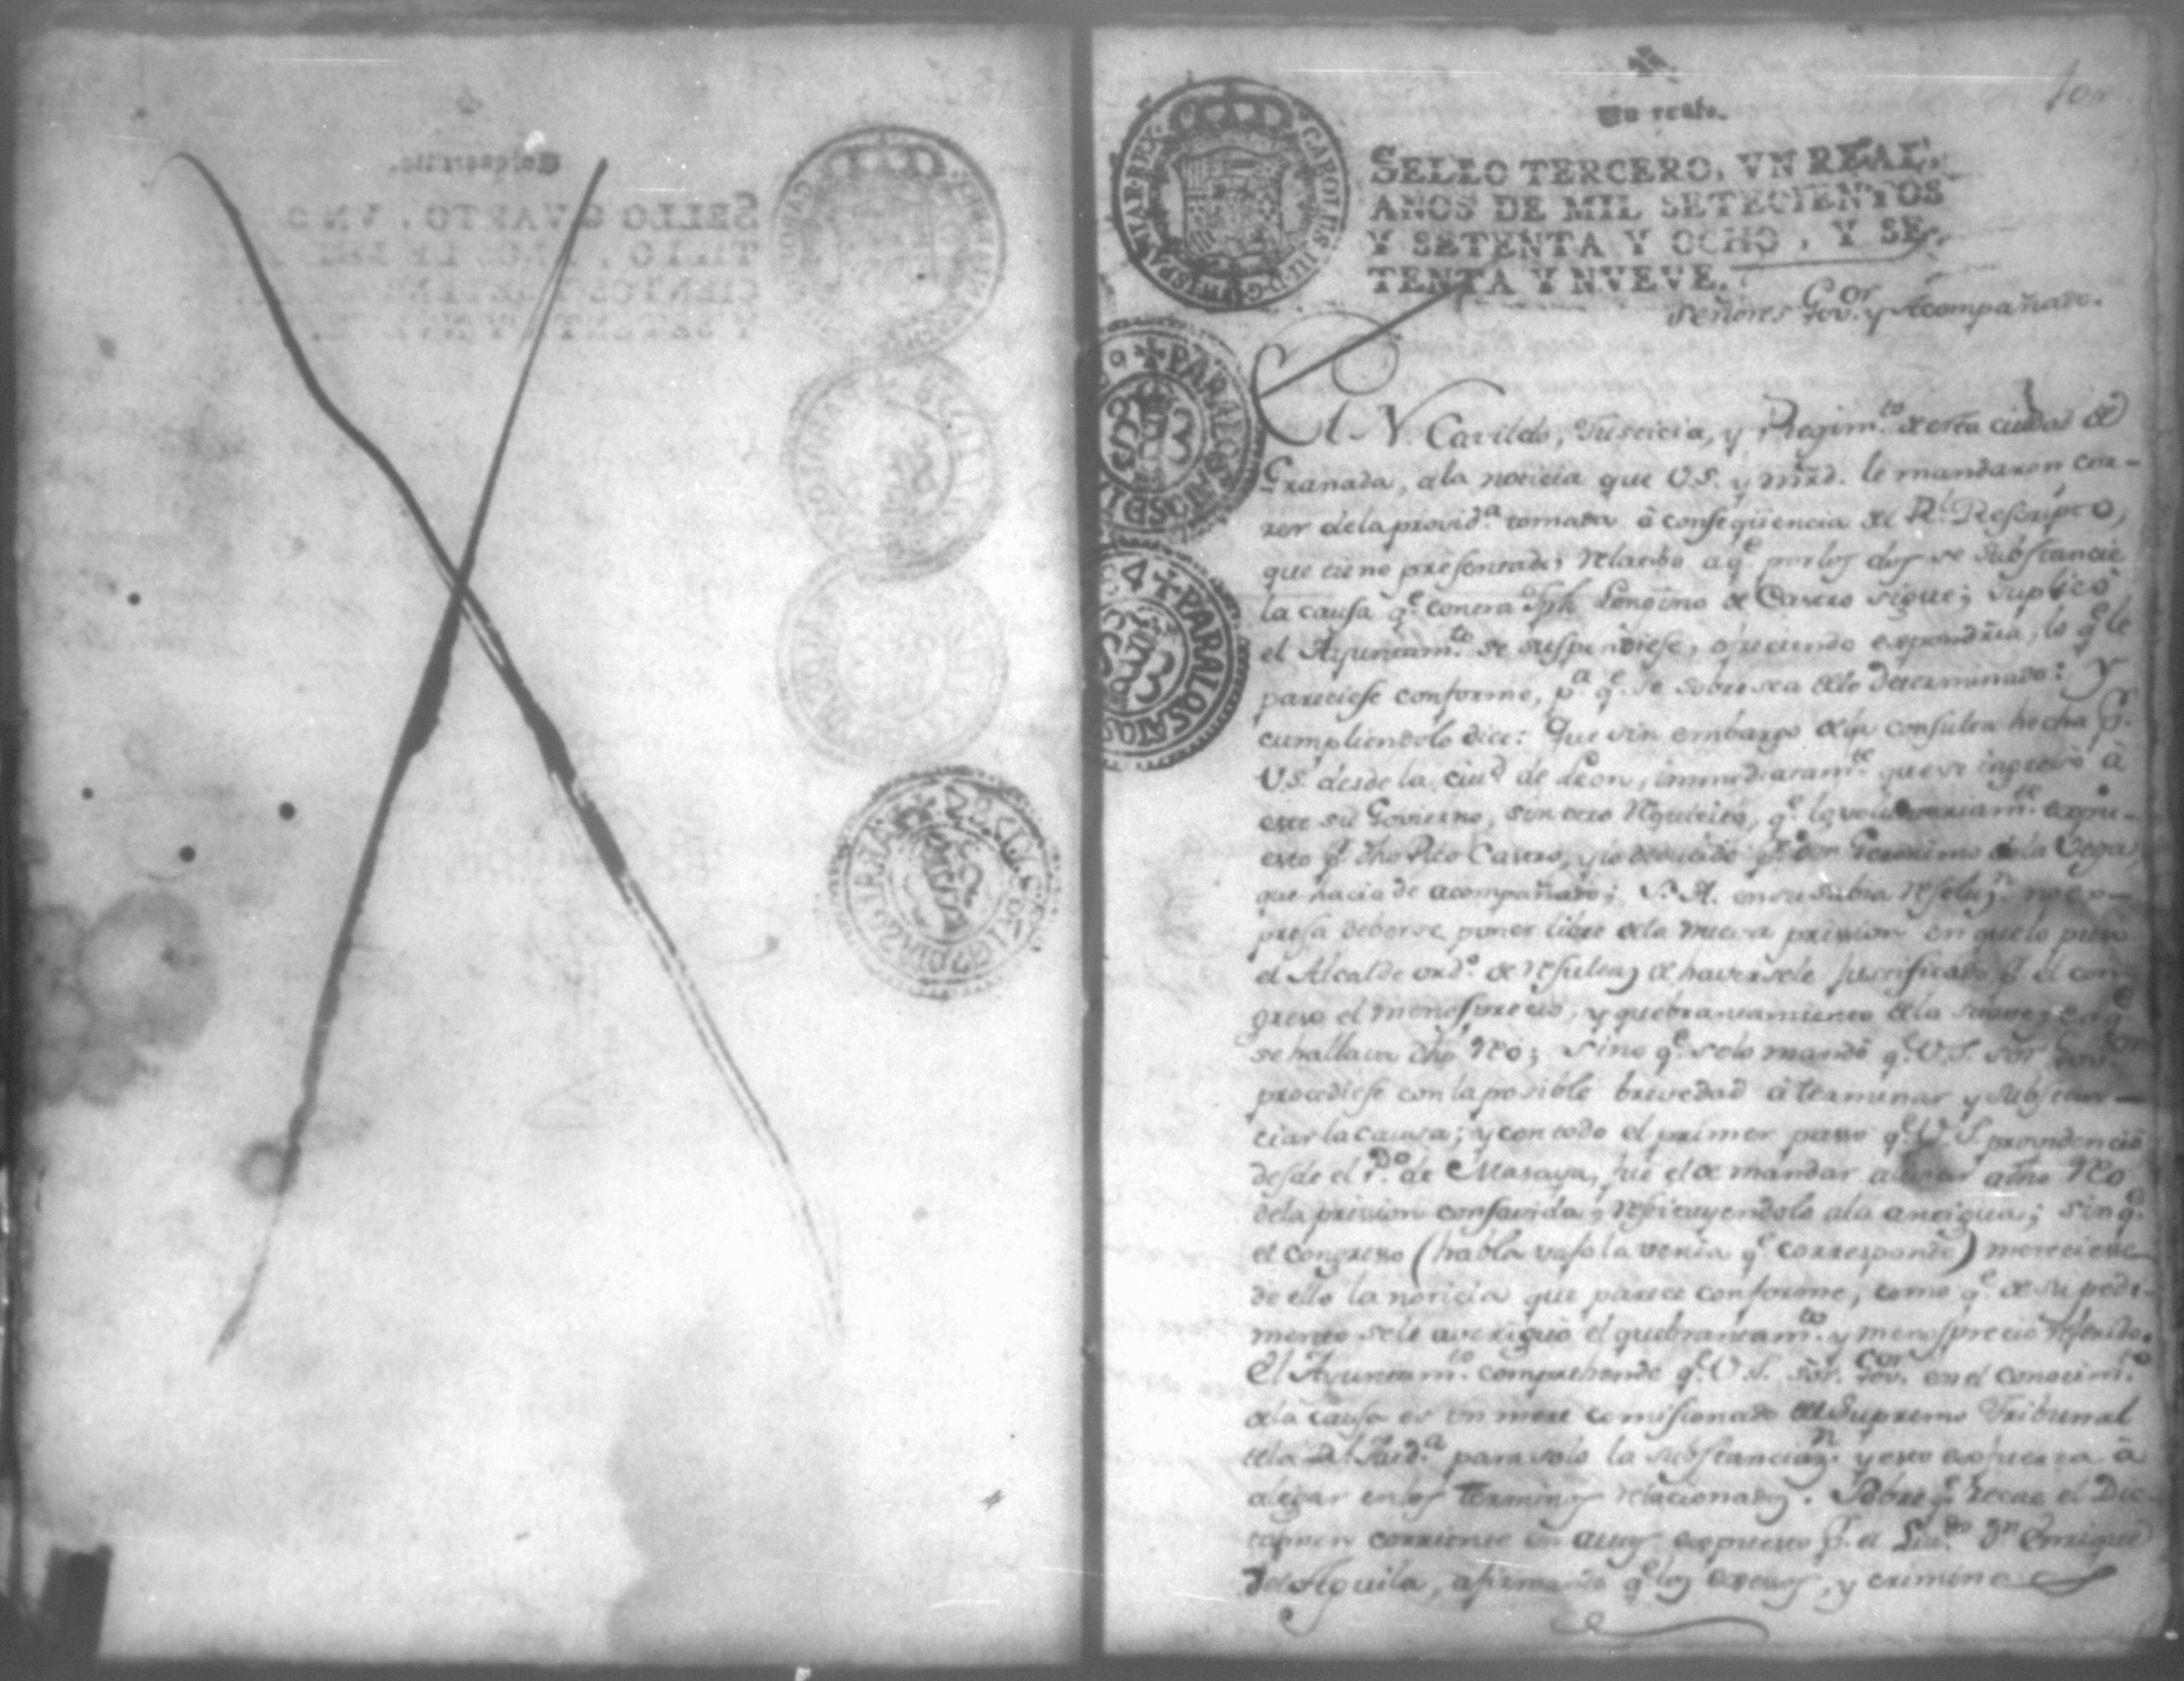 Un real.
SELLO TERCERO, VN REAL,
AÑOS DE MIL SETECIENTOS
Y SETENTA Y OCHO, Y SE-
TENTA Y NVEVE.
Señores Gov.or y Acompañado.
El N. Cavildo, Justicia, y Regim.to de esta ciudad de
Granada, a la noticia que V.S. y mrd. le mandaron cor-
rer de la provid.a tomada à conseqüencia del R.l Rescripto,
que tiene presentado, relativo a q.e por los dos se substancie
la causa q.e contra Jph Longino de Castro sigue; suplicò
el Ayuntam.to se suspendiese, ofreciendo expondria, lo q.e le
pareciese conforme, p.a q.e se sobresea de lo determinado: Y
cumpliendolo dice: Que sin embargo de la consulta hecha p.r
V.S. desde la ciu.d de Leon, immediatam.te que se ingresò à
este su Govierno, sin otro requisito, q.e lo voluntariam.te expu-
esto p.r dho Reo Castro, y lo deducido p.r Don Geronimo de la Vega,
que hacia de acompañado; S.A. en su sabia resoluz.n no ex-
presa deberse poner libre de la nueva prision en que lo puso
el Alcalde ord.o de resultas de haversele justificado p.r el con-
greso el menosprecio, y quebrantamiento de la en q.e
se hallava dho Reo; sino q.e solo mandò q.e V.S. Sor Gov.or
procediese con la posible brevedad à terminar y substan-
ciar la causa; y con todo el primer paso q.e V.S. providenciò
desde el P.do de Masaya, fue el de mandar a dho Reo
de la prision conferida, restituyendolo a la antigua; sin q.e
el congreso (habla vajo la venia q.e corresponde) mereciese
de ello la noticia que parece conforme, como q.e de su pedi-
mento se le averiguò el quebrantam.to y menosprecio referido.
El Ayuntam.to comprehende q.e V.S. Sor. Gov.or en el conocim.to
de la causa es un mere comisionado del Supremo Tribunal
de la R.l Aud.a para solo la substanciaz.n y esto esfuerza à
alegar en los terminos relacionados. Sobre q.e recae el Dic-
tamen corriente en autos expuesto p.r el Liz.do D.n Enrique
del Aguila, afirmando q.e los excesos, y crimine